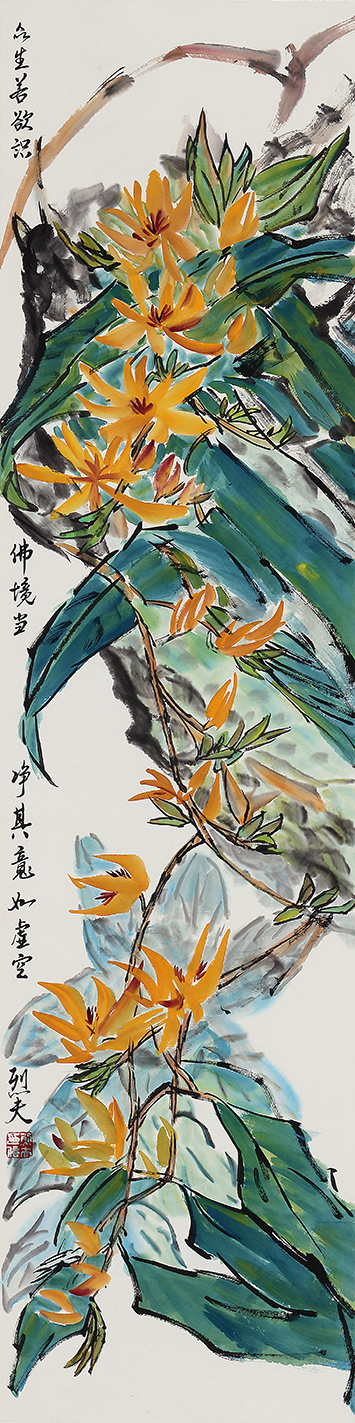 众生若欲识
佛境当
净其意如虚空
烈夫